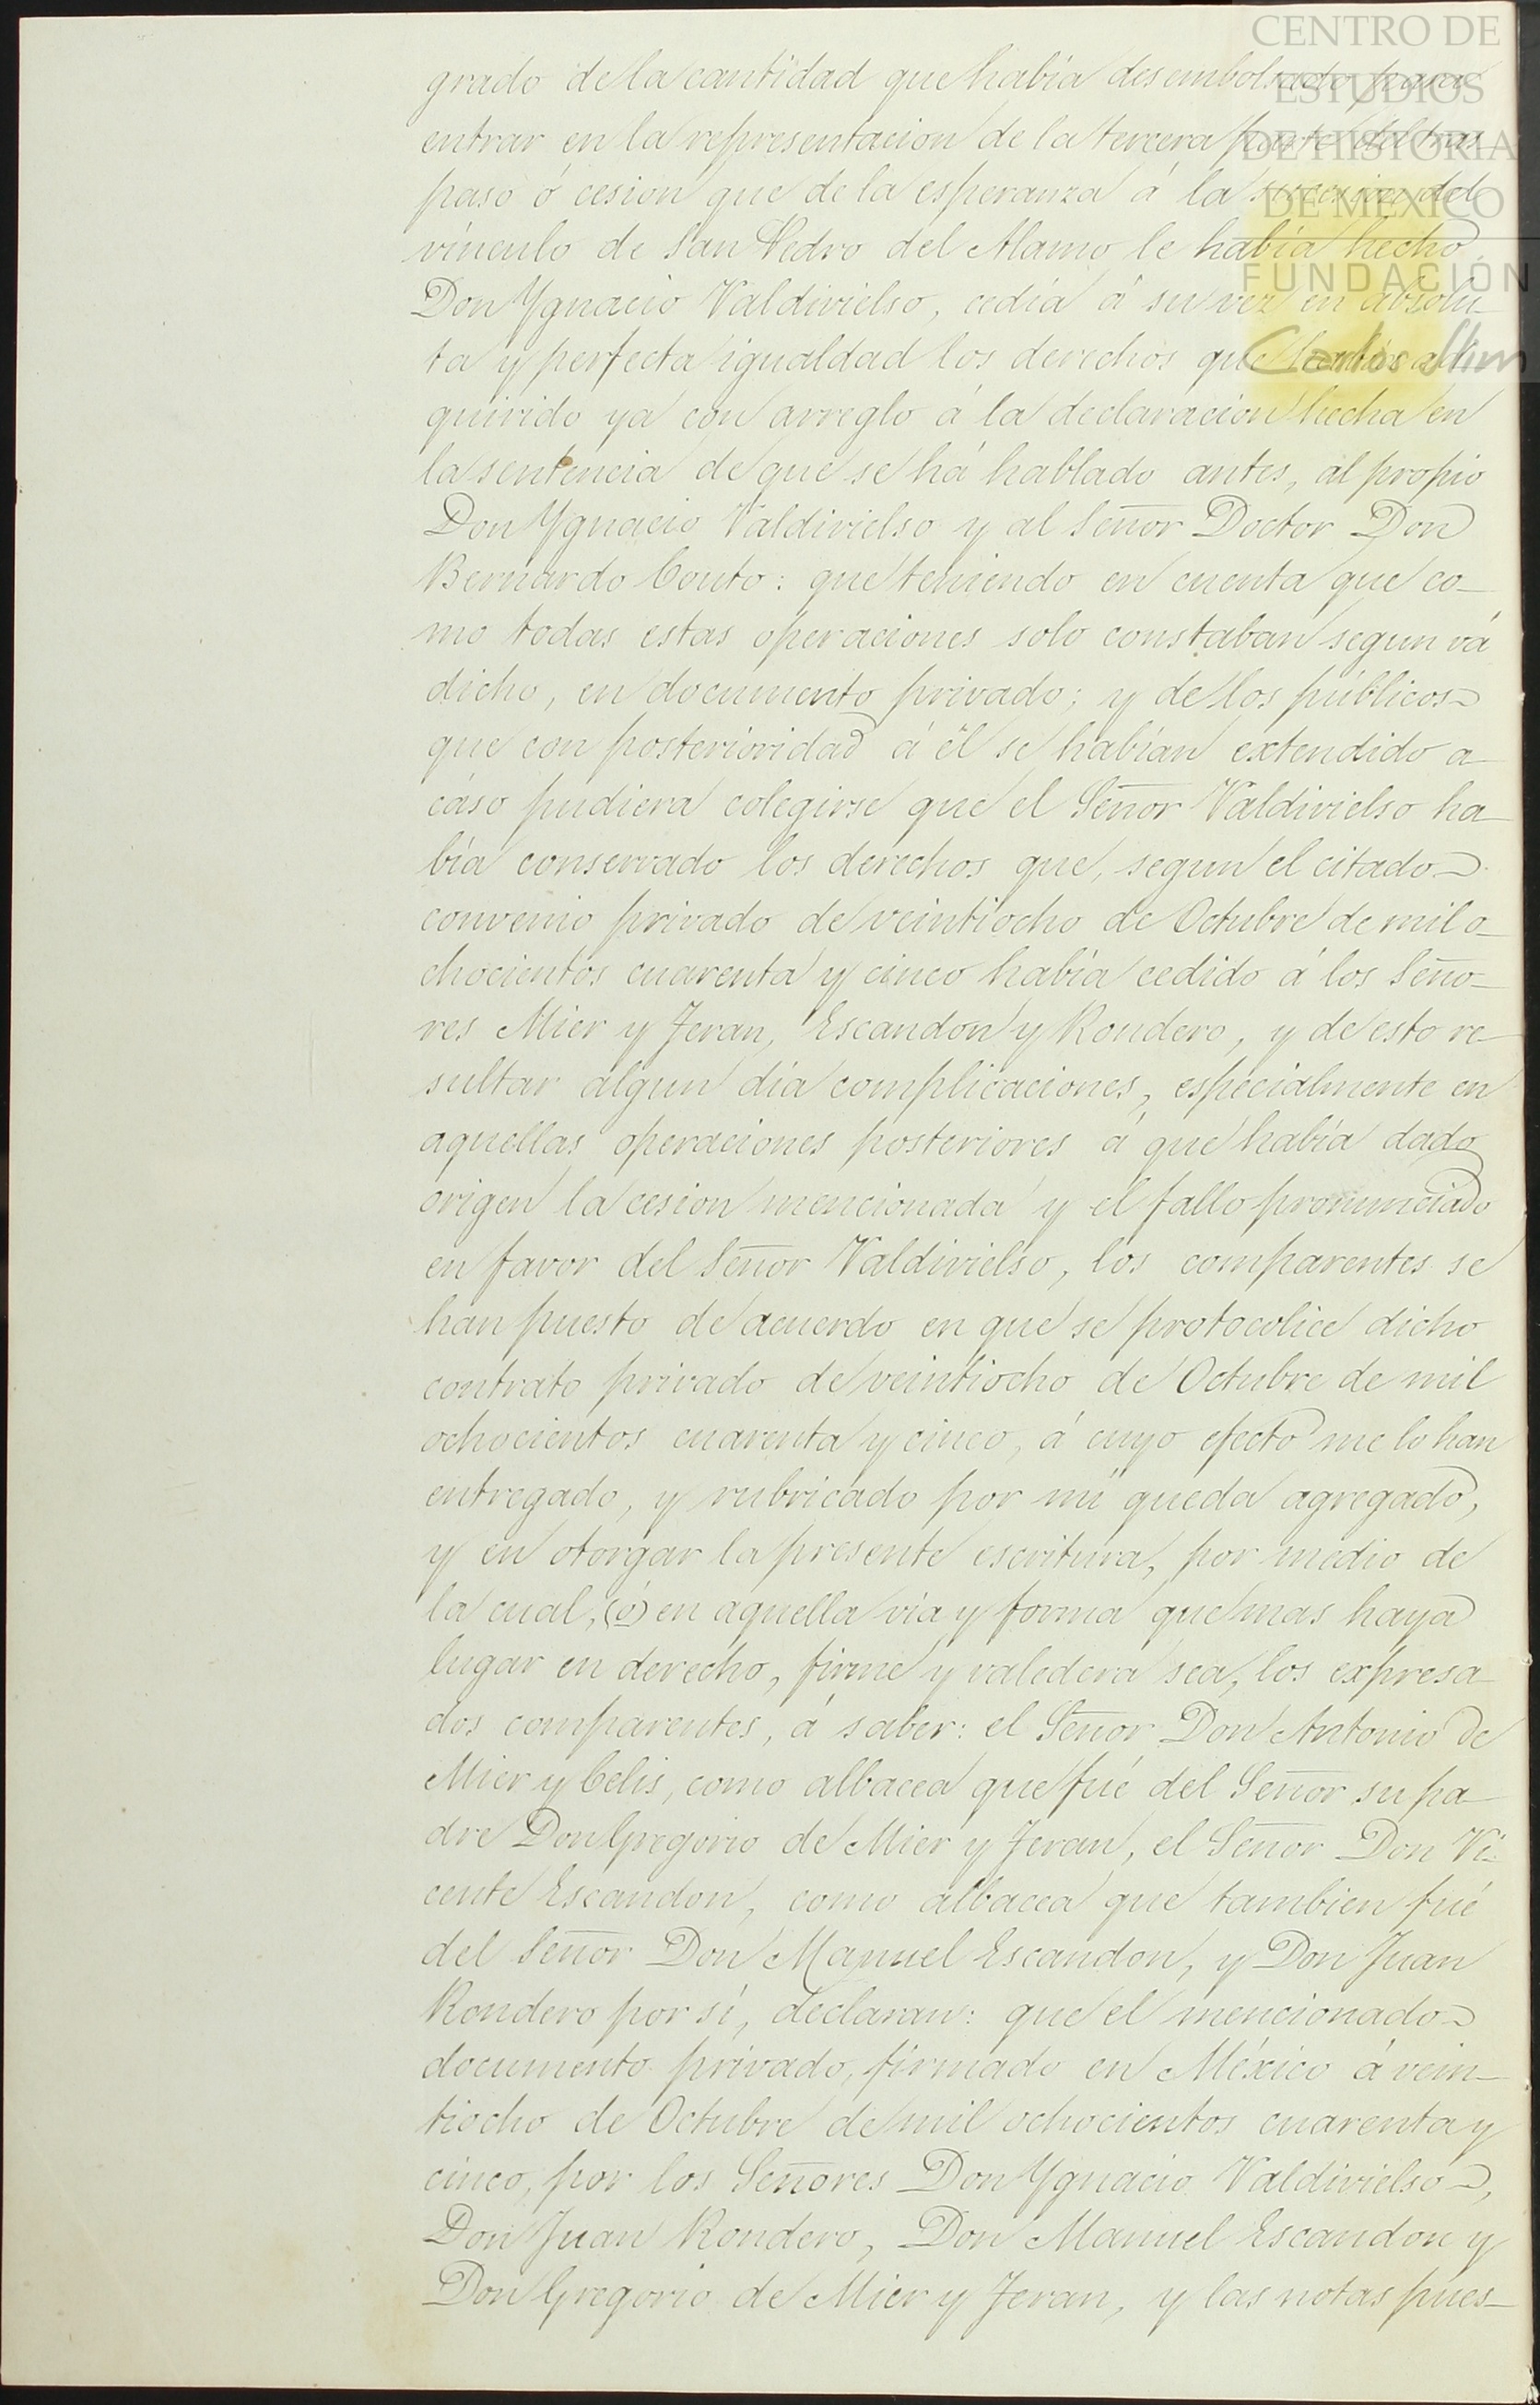 CENTRO DE
ESTUDIOS
DE HISTORIA
DE MÉXICO
FUNDACIÓN
Carlos Slim
grado de la cantidad que había desembolsado para
entrar en la representacion de la tercera parte del tras-
paso ó cesion que de la esperanza á la sucesion del
vínculo de San Pedro del Alamo le había hecho
Don Ygnacio Valdivielso, cedía á su vez en absolu-
ta y perfecta igualdad los derechos que había ad-
quirido ya con arreglo á la declaracion hecha en
la sentencia de que se há hablado antes, al propio
Don Ygnacio Valdivielso y al Señor Doctor Don
Bernardo Couto: que teniendo en cuenta que co-
mo todas estas operaciones solo constaban segun vá
dicho, en documento privado; y de los públicos
que con posterioridad á él se habían extendido a-
cáso pudiera colegirse que el Señor Valdivielso ha-
bía conservado los derechos que, segun el citado
convenio privado de veintiocho de Octubre de mil o-
chocientos cuarenta y cinco había cedido á los Seño-
res Mier y Teran, Escandon y Rondero, y de esto re-
sultar algun día complicaciones, especialmente en
aquellas operaciones posteriores á que había dado
origen la cesion mencionada y el fallo pronunciado
en favor del Señor Valdivielso, los comparentes se
han puesto de acuerdo en que se protocolice dicho
contrato privado de veintiocho de Octubre de mil
ochocientos cuarenta y cinco, á cuyo efecto me lo han
entregado, y rubricado por mí queda agregado,
y en otorgar la presente escritura, por medio de
la cual, (ó) en aquella vía y forma que mas haya
lugar en derecho, firme y valedera sea, los expresa-
dos comparentes, á saber: el Señor Don Antonio de
Mier y Celis, como albacea que fué del Señor su pa-
dre Don Gregorio de Mier y Teran, el Señor Don Vi-
cente Escandon, como albacea que tambien fué
del Señor Don Manuel Escandon, y Don Juan
Rondero por sí, declaran: que el mencionado
documento privado, firmado en México á vein-
tiocho de Octubre de mil ochocientos cuarenta y
cinco, por los Señores Don Ygnacio Valdivielso,
Don Juan Rondero, Don Manuel Escandon y
Don Gregorio de Mier y Teran, y las notas pues-